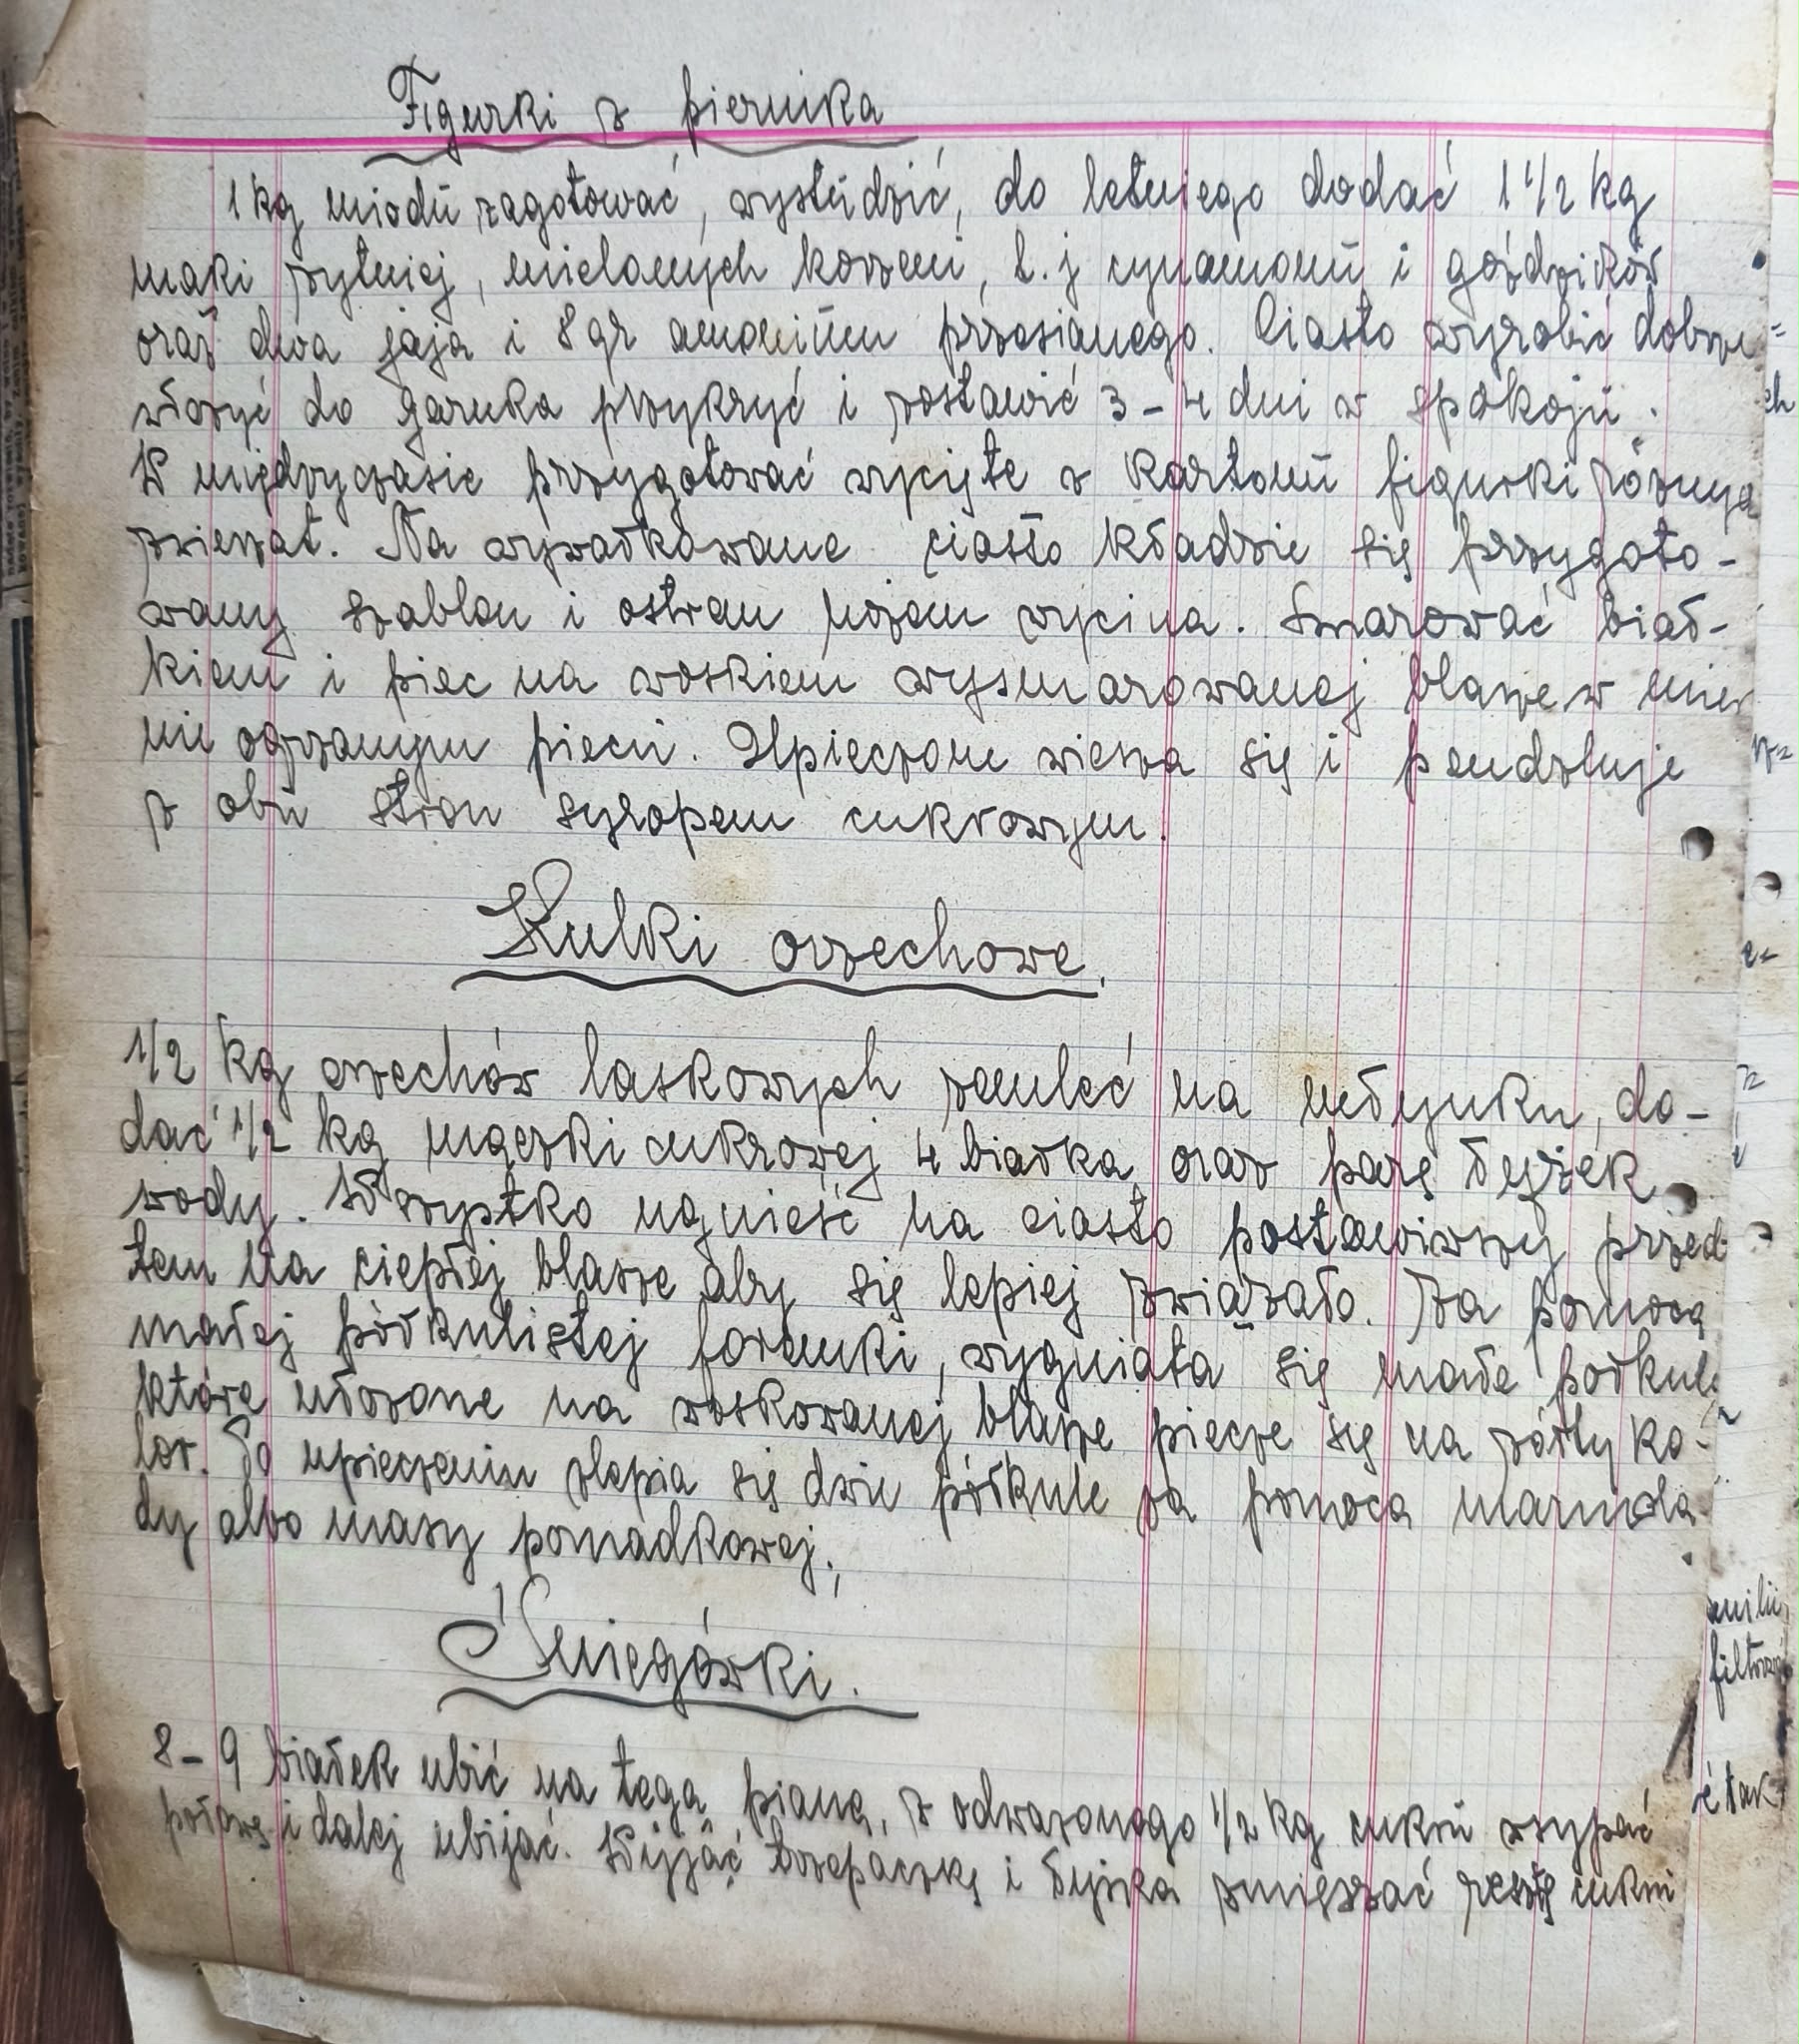 Figurki z piernika
1 kg miodu zagotować, wystudzić, do letniego dodać 1 1/2 kg
mąki żytniej, mielonych korzeni, t.j cynamonu i goździków
oraz dwa jaja i 8 gr amonium przesianego. Ciasto wyrobić dobrze
włożyć do garnka przykryć i zostawić 3-4 dni w spokoju.
W międzyczasie przygotować wycięte z kartonu figurki różnych
zwierząt. Na wywałkowane ciasto kładzie się przygoto-
wany szablon i ostrem nożem wycina. Smarować biał-
kiem i piec na woskiem wysmarowanej blasze w
nie ogrzanym piecu. Upieczone wiesza się i pendzluje
z obu stron syropem cukrowym.
Kulki orzechowe.
1/2 kg orzechów laskowych zemleć na młynku, do-
dać 1/2 kg mączki cukrowej 4 białka, oraz parę łyżek
wody. Wszystko ugnieść na ciasto postawiwszy przed
tem na ciepłej blasze aby się lepiej związało. Za pomocą
małej półkulistej foremki, wygniata się małe półkule
które ułożone na woskowanej blasze piecze się na żółty ko-
lor. Po upieczeniu zlepia się dwie półkule za pomocą marmola
dy albo masy pomadkowej.
Śniegówki.
8-9 białek ubić na tęgą pianę, z odważonego 1/2 kg cukru wsypać
połowę i dalej ubijać. Wyjąć trzepaczkę i łyżką zmięszać resztę cukru
ch
filtrować
é tak